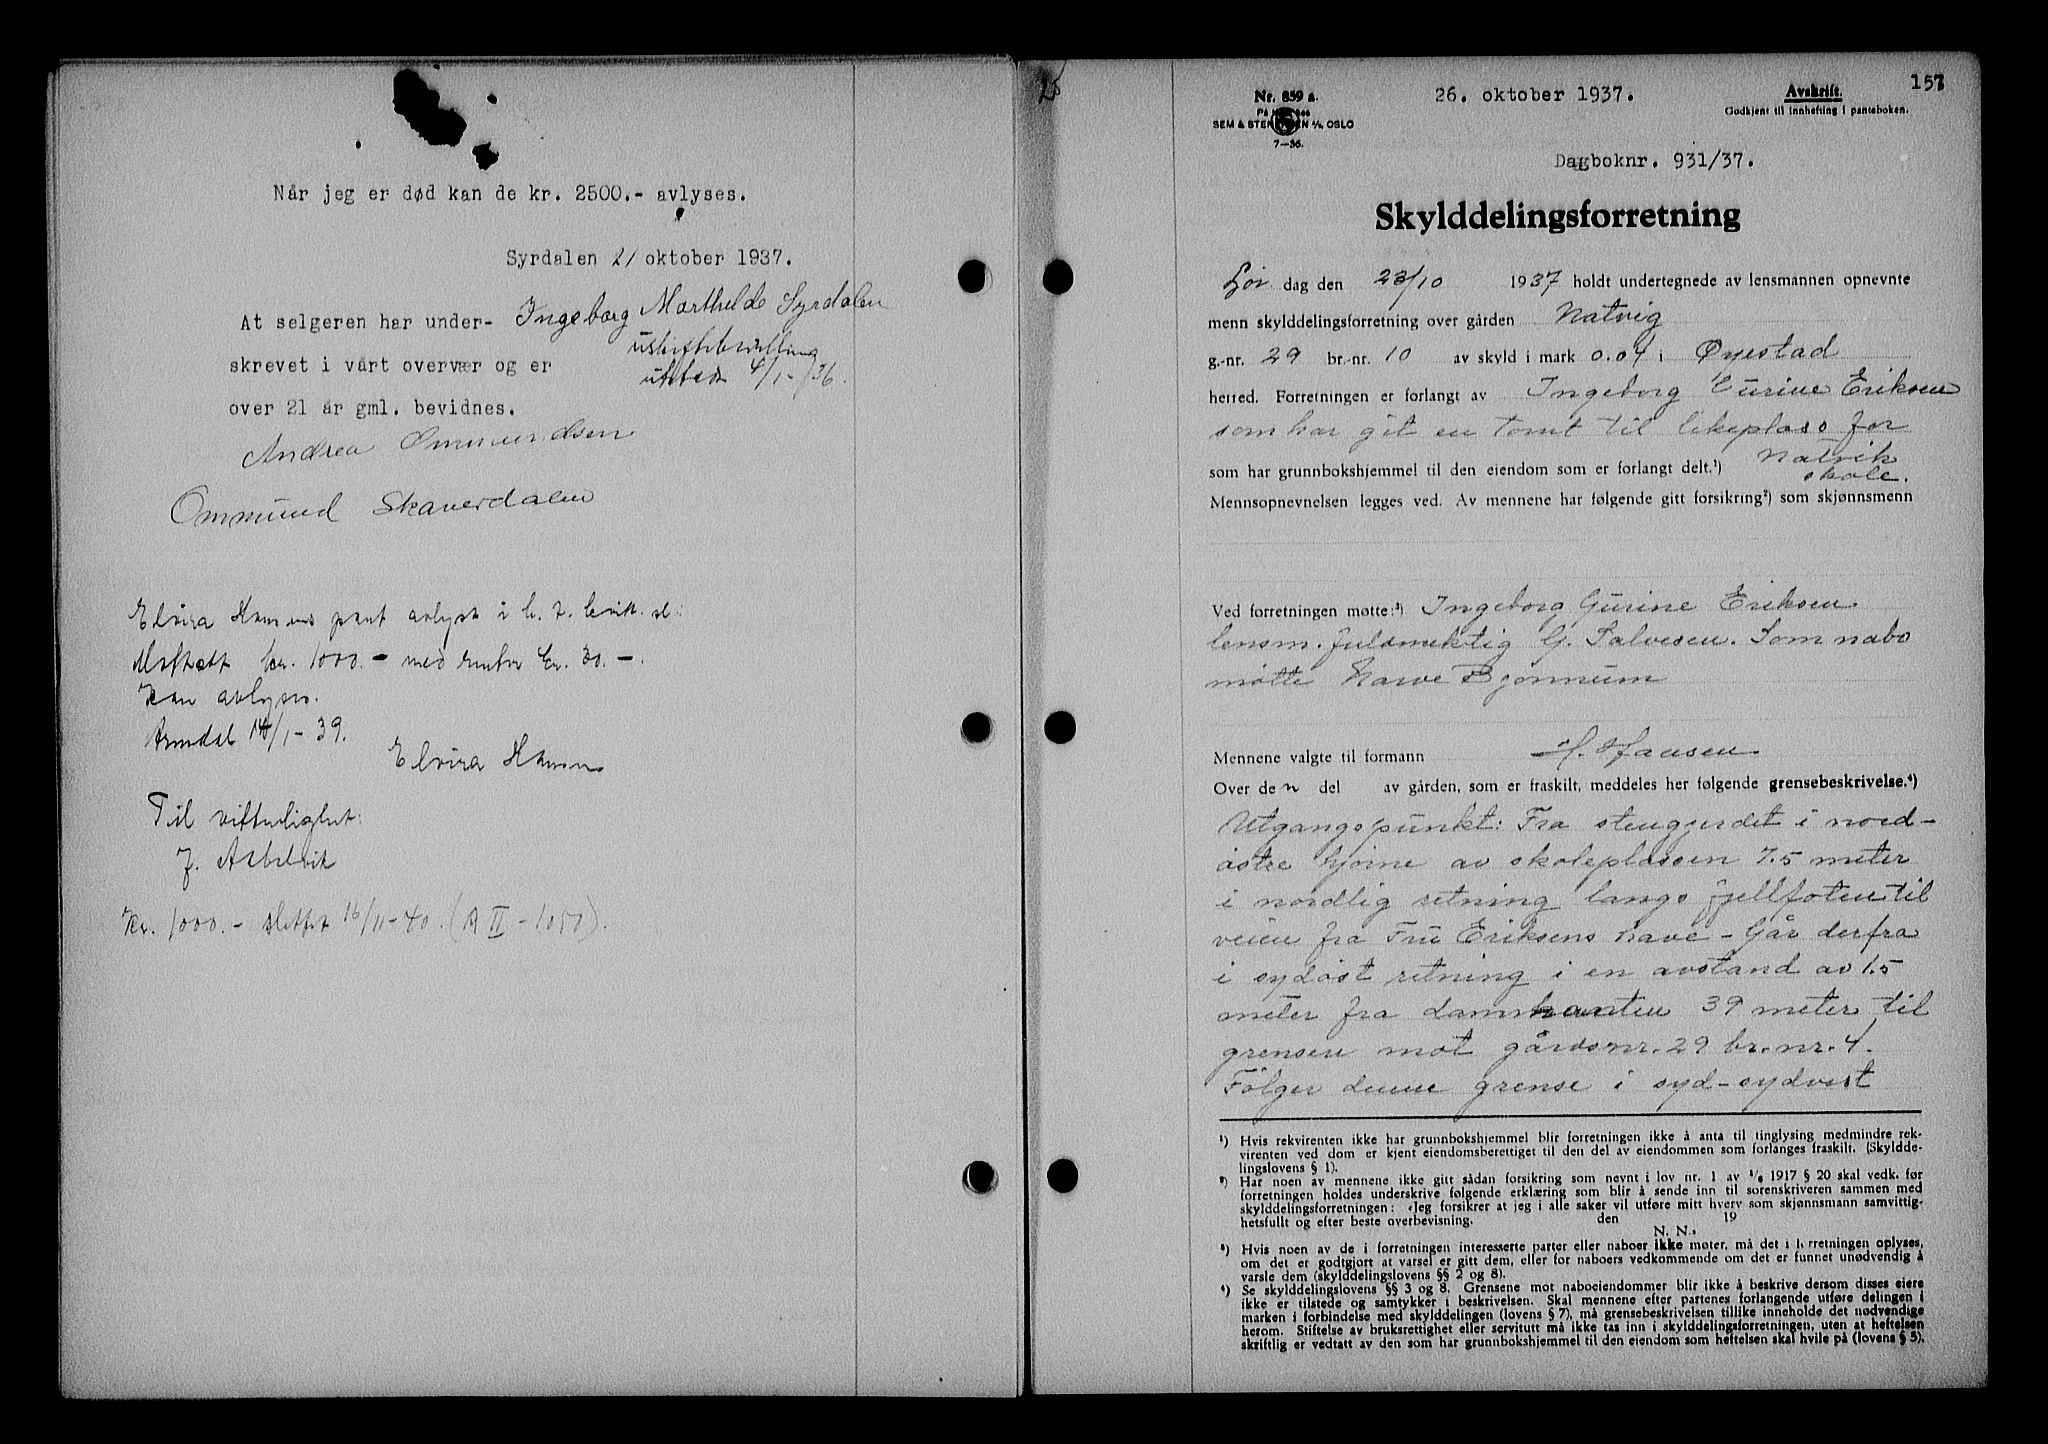 Når jeg er død kan de kr. 2500.- avlyses.
Syrdalen 21 oktober 1937.
Ingeborg Marthilde Syrdalen
At selgeren har under-
skrevet i vårt overvær og er
4/1-36.
over 21 år gml. bevidnes.
Andrea Ommundsen
Ommund Skaverdalen
Elvira Hansens pant avlyst i
kr. 1000.- med renter kr. 30.-.
kan avlyses.
Arendal 14/1-39.
Elvira Hansen
Til vitterlighet:
Kr. 1000.- slettet 16/11-40. (A II-1050).
Nr. 859 a.
SEM & STENERSEN A/S, OSLO
7-36.
26. oktober 1937.
Avskrift.
Godkjent til innhefting i panteboken.
157
Dagboknr. 931/37.
Skylddelingsforretning
Lør dag den 23/10 1937 holdt undertegnede av lensmannen opnevnte
menn skylddelingsforretning over gården Natvig
g.-nr. 29 br.-nr. 10 av skyld i mark 0.04 i Øyestad
herred. Forretningen er forlangt av Ingeborg Gurine Eriksen
som har git en tomt til lekeplass for
Natvik
skole.
som har grunnbokshjemmel til den eiendom som er forlangt delt.¹)
Mennsopnevnelsen legges ved. Av mennene har følgende gitt forsikring²) som skjønnsmenn
Ved forretningen møtte:³) Ingeborg Gurine Eriksen
lensm. fuldmektig G. Salvesen. Som nabo
møtte Narve Bjønnum
Mennene valgte til formann H. Hansen
Over den del av gården, som er fraskilt, meddeles her følgende grensebeskrivelse.⁴)
Utgangspunkt: Fra stengjerdet i nord-
østre hjørne av skoleplassen 7.5 meter
i nordlig retning langs fjellfoten til
veien fra Fru Eriksens have - Går derfra
i sydøst retning i en avstand av 1.5
meter fra damkanten 39 meter til
grensen mot gårdsnr. 29 br.-nr. 4.
Følger denne grense i syd-sydvest
¹) Hvis rekvirenten ikke har grunnbokshjemmel blir forretningen ikke å anta til tinglysing medmindre rek-
virenten ved dom er kjent eiendomsberettiget til den del av eiendommen som forlanges fraskilt. (Skyldde-
lingslovens § 1).
²) Har noen av mennene ikke gitt sådan forsikring som nevnt i lov nr. 1 av 1/6 1917 § 20 skal vedk. før
forretningen holdes underskrive følgende erklæring som blir å sende inn til sorenskriveren sammen med
skylddelingsforretningen: «Jeg forsikrer at jeg i alle saker vil utføre mitt hverv som skjønnsmann samvittig-
hetsfullt og efter beste overbevisning. den 19
N. N.»
³) Hvis noen av de i forretningen interesserte parter eller naboer ikke møter, må det i forretningen oplyses,
om det er godtgjort at varsel er gitt dem, eller for naboers vedkommende om det er funnet unødvendig å
varsle dem (skylddelingslovens §§ 2 og 8).
⁴) Se skylddelingslovens §§ 3 og 8. Grensene mot naboeiendommer blir ikke å beskrive dersom disses eiere
ikke er tilstede og samtykker i beskrivelsen. Skal mennene efter partenes forlangende utføre delingen i
marken i forbindelse med skylddelingen (lovens § 7), må grensebeskrivelsen tillike inneholde det nødvendige
herom. Stiftelse av bruksrettighet eller servitutt må ikke tas inn i skylddelingsforretningen, uten at heftelsen
skriftlig er vedtatt av den som har grunnbokshjemmel til den eiendom som heftelsen skal hvile på (lovens § 5).